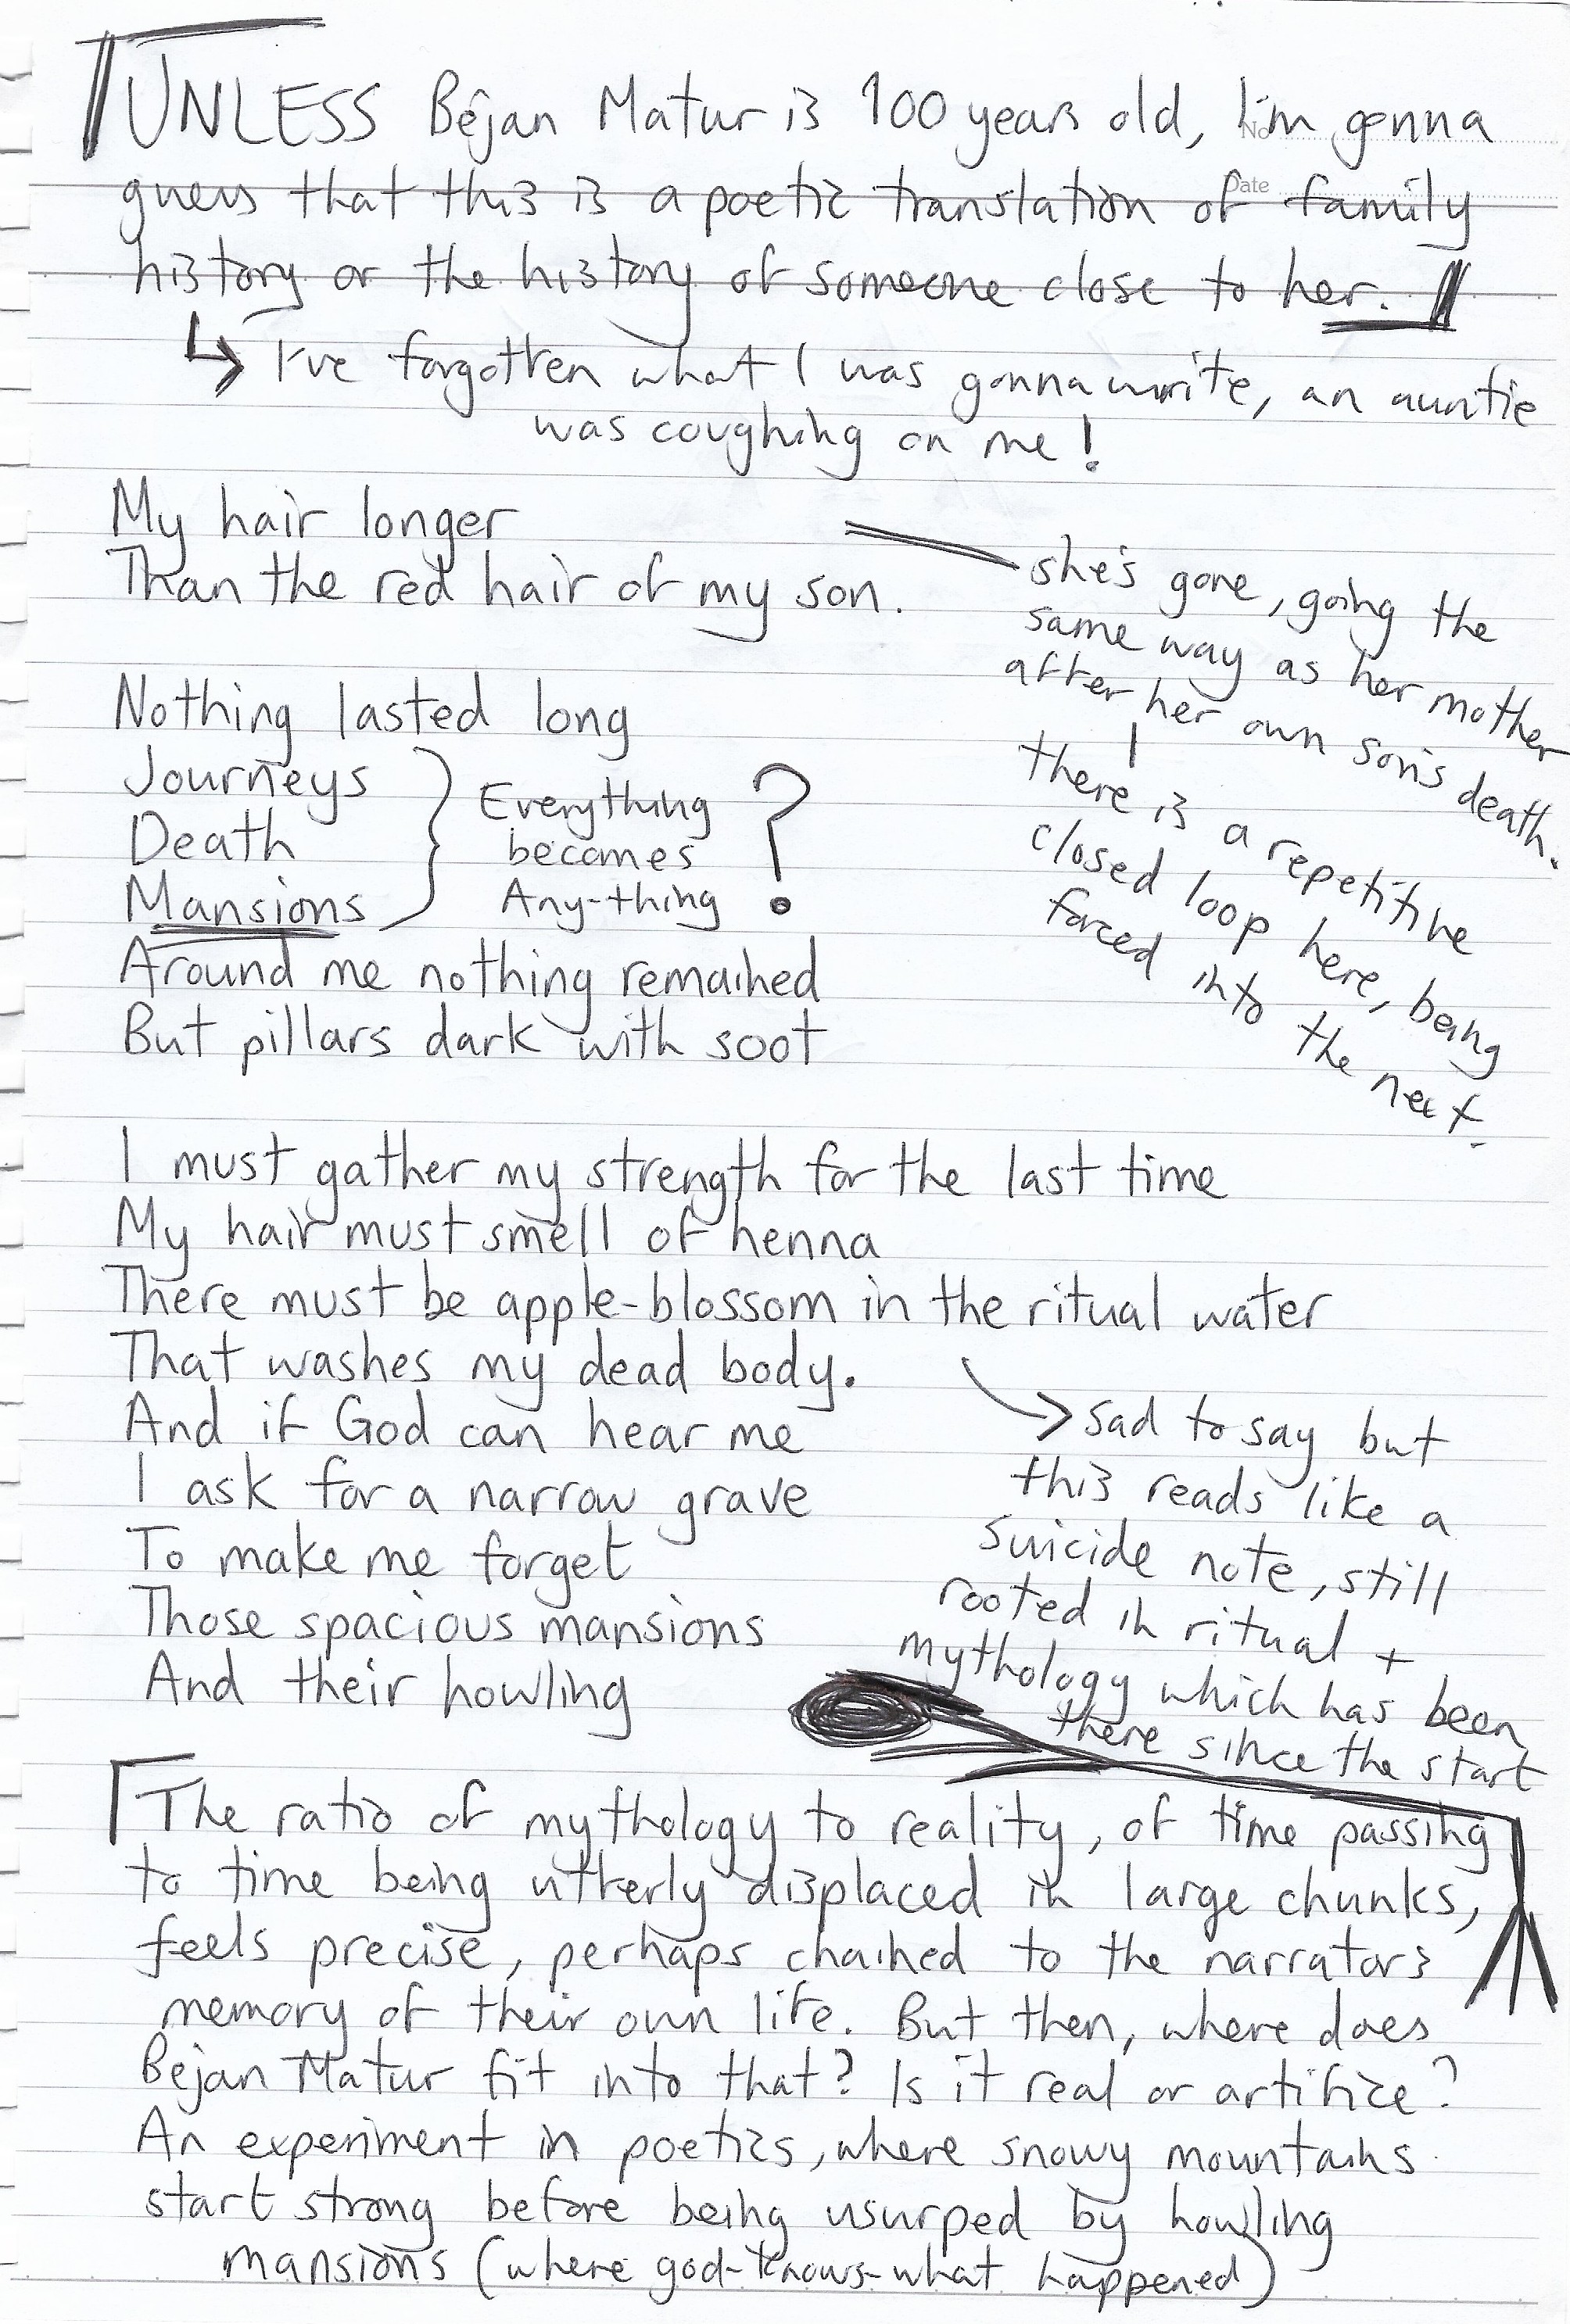 UNLESS Bejan Matur is 100 years old, I'm gonna
guess that this is a poetic translation of family
history or the history of someone close to her.
I've forgotten what I was gonna write, an auntie
was coughing on me!
My hair longer
Than the red hair of my son.
she's gone, going the
same way as her mother
after her own son's death.
there is a repetitive
closed loop here, being
forced into the next.
Nothing lasted long
Journeys
Death
Mansions
Everything
becomes
Any-thing
?
Around me nothing remained
But pillars dark with soot
I must gather my strength for the last time
My hair must smell of henna
There must be apple-blossom in the ritual water
That washes my dead body.
And if God can hear me
I ask for a narrow grave
To make me forget
Those spacious mansions
And their howling
sad to say but
this reads like a
suicide note, still
rooted in ritual +
mythology which has been
there since the start
The ratio of mythology to reality, of time passing
to time being utterly displaced in large chunks,
feels precise, perhaps chained to the narrators
memory of their own life. But then, where does
Bejan Matur fit into that? Is it real or artifice?
An experiment in poetics, where snowy mountains
start strong before being usurped by howling
mansions (where god-knows-what happened)
No
Date